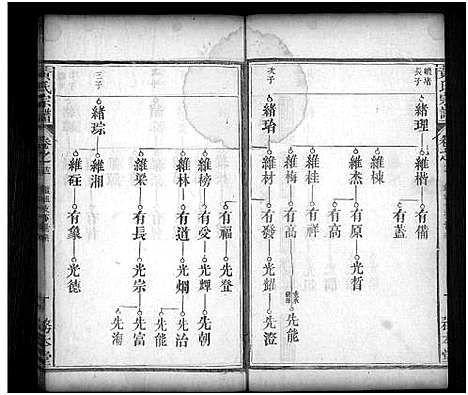 長子
緒理
維楷
有備
有藍
維棟
維杰
有原
光哲
維桂
有祥
維梅
有高
先能
次子
緒珆
維材
有發
光韶
先澄
有福
光登
維榜
有受
光輝
先朝
維林
有道
光燗
先治
先能
維梁
有長
光宗
先富
先海
三子
緒琮
維湘
維砡
有象
光德
黃氏宗譜